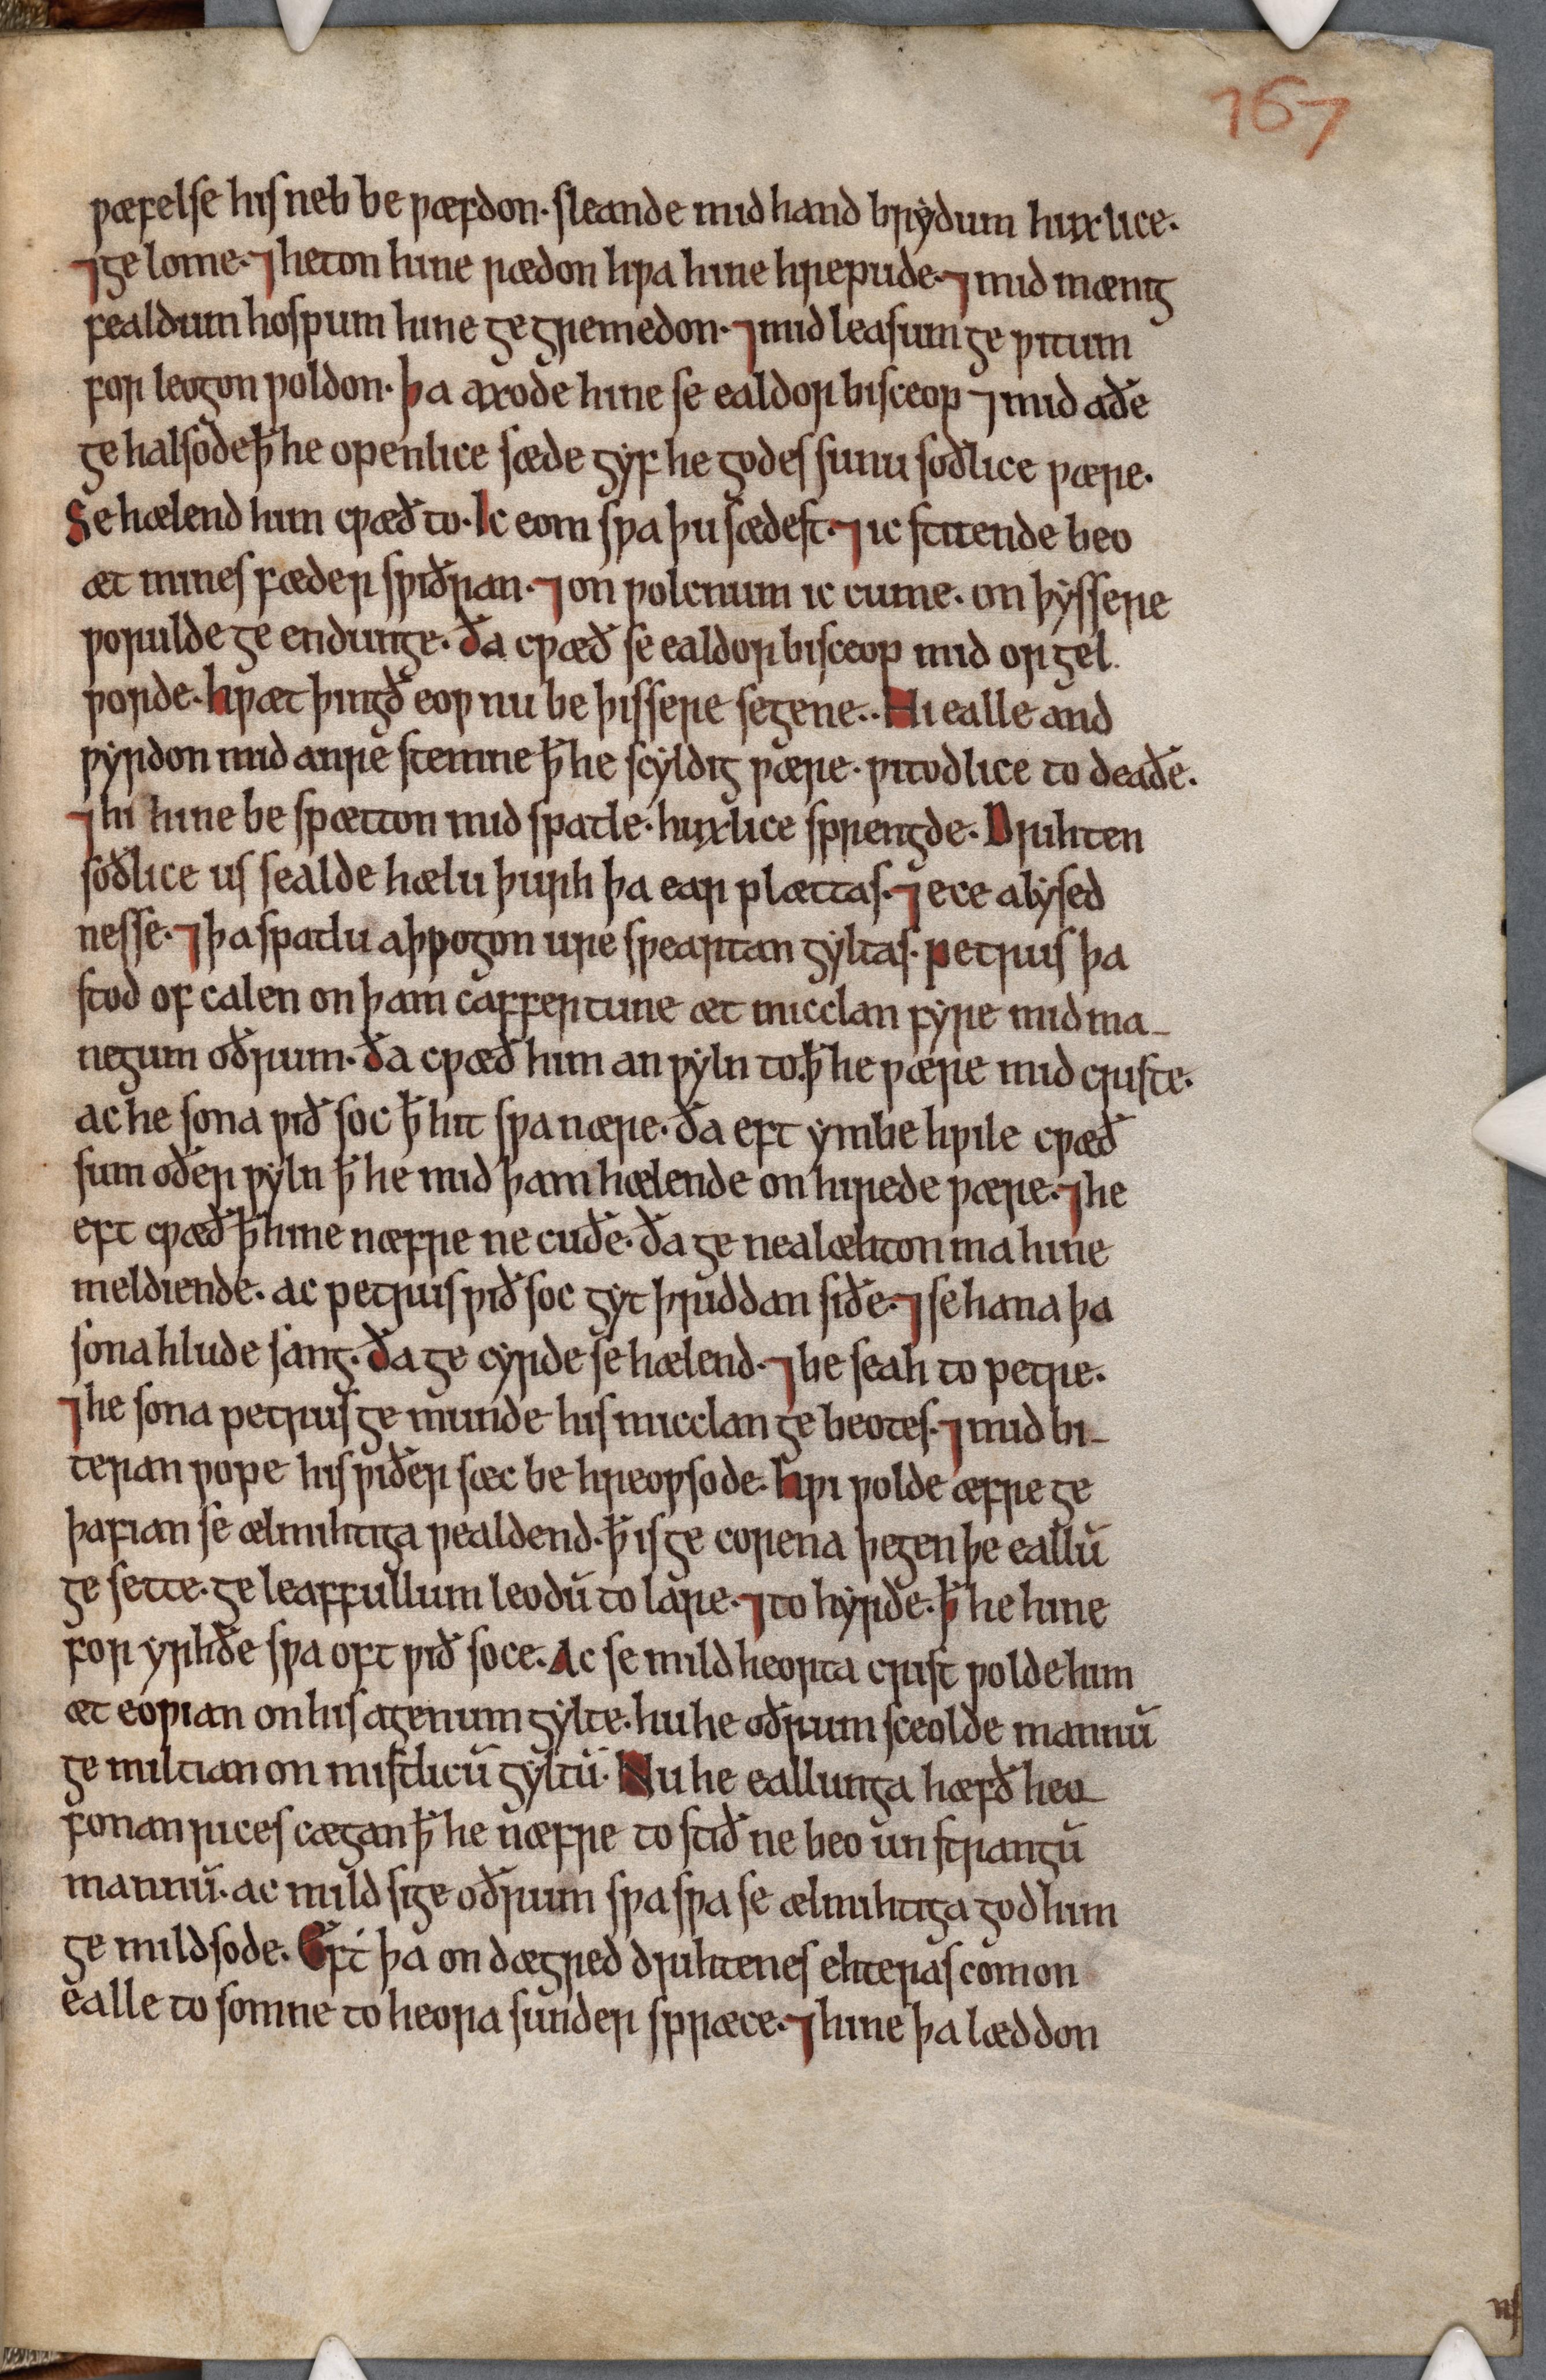 167
ƿæfelse his neb be ƿæfdon· sleande mid hand brẏdum huxlice·
⁊ ge lome· ⁊ heton hine rædon hƿa hine hrepude· ⁊ mid mænig
fealdum hospum hine ge gremedon· ⁊ mid leasum ge ƿitum
for leogon ƿoldon· þa axode hine se ealdor bisceop ⁊ mid aðe
ge halsode ꝥ he openlice sæde gẏf he godes sunu soðlice ƿære·
Se hælend him cƿæð to· Ic eom sƿa þu sædest· ⁊ ic sittende beo
æt mines fæder sƿiðran· ⁊ on ƿolcnum ic cume· on þẏssere
ƿorulde ge endunge· ða cƿæð se ealdor bisceop mid orgel
ƿorde· hƿæt þingð eoƿ nu be þissere segene·· Hi ealle and
ƿẏrdon mid anre stemne ꝥ he scẏldig ƿære· ƿitodlice to deaðe·
⁊ hi hine be spætton mid spatle· huxlice sprengde· Drihten
soðlice us sealde hælu þurh þa ear plættas· ⁊ ece alẏsed
nesse· ⁊ þa spatlu aþƿogon ure sƿeartan gẏltas· petrus þa
stod of calen on þam caffertune æt micclan fẏre mid ma-
negum oðrum· ða cƿæð him an ƿẏln to· ꝥ he ƿære mid criste·
ac he sona ƿið soc ꝥ hit sƿa nære· ða eft ẏmbe hƿile cƿæð
sum oðer ƿẏln ꝥ he mid þam hælende on hirede ƿære· ⁊ he
eft cƿæð ꝥ hine næfre ne cuðe· ða ge nealæhton ma hine
meldiende· ac petrus ƿið soc gẏt þriddan siðe· ⁊ se hana þa
sona hlude sang· ða ge cẏrde se hælend· ⁊ be seah to petre·
⁊ he sona petrus ge munde his micclan ge beotes· ⁊ mid bi-
teran ƿope his ƿiðer sæc be hreoƿsode· hƿi ƿolde æfre ge
þafian se ælmihtiga ƿealdend· ꝥ is ge corena þegen þe eallū
ge sette· ge leaffullum leodū to lare· ⁊ to hẏrde· ꝥ he hine
for ẏrhðe sƿa oft ƿið soce· Ac se mildheorta crist ƿolde him
æt eoƿian on his agenum gẏlte· hu he oðrum sceolde mannū
ge miltian on mistlicū gẏltū· Nu he eallunga hæfð heo-
fonan rices cægan ꝥ he næfre to stið ne beo un strangū
mannū· ac mildsige oðrum sƿa sƿa se ælmihtiga god him
ge mildsode· Eft þa on dægred drihtenes ehteras comon
ealle to somne to heora sunder spræce· ⁊ hine þa læddon